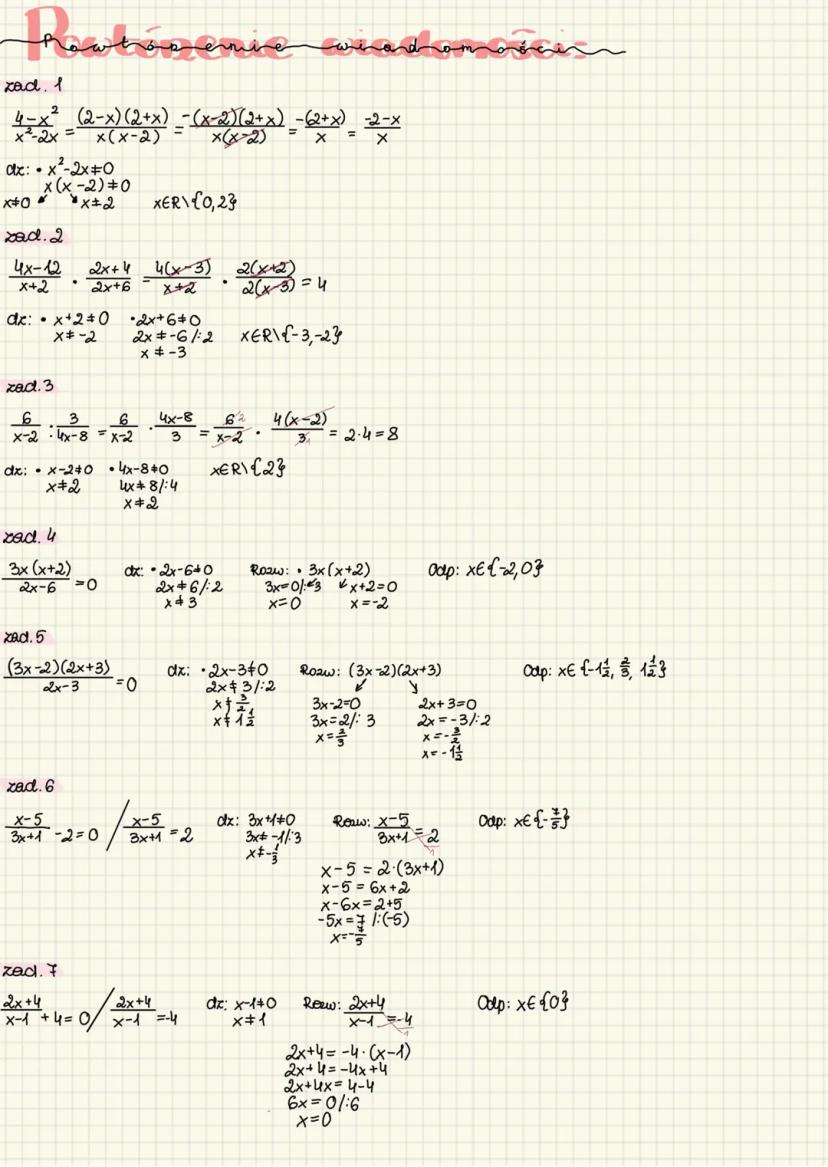 Powtórzenie wiadomości:
zad. 1
4-x²/x²-2x = (2-x)(2+x)/x(x-2) = -(x-2)(2+x)/x(x-2) = -(2+x)/x = -2-x/x
dz: • x²-2x≠0
x(x-2)≠0
x≠0 ↙ ↘ x≠2 x∈R\{0,2}
zad. 2
4x-12/x+2 · 2x+4/2x+6 = 4(x-3)/x+2 · 2(x+2)/2(x-3) = 4
dz: • x+2≠0 • 2x+6≠0
x≠-2 2x≠-6/:2 x∈R\{-3,-2}
x≠-3
zad. 3
6/x-2 : 3/4x-8 = 6/x-2 · 4x-8/3 = 6²/x-2 · 4(x-2)/3₁ = 2·4=8
dz: • x-2≠0 • 4x-8≠0 x∈R\{2}
x≠2 4x≠8/:4
x≠2
zad. 4
3x(x+2)/2x-6 = 0 dz: • 2x-6≠0 Rozw: • 3x(x+2) Odp: x∈{-2,0}
2x≠6/:2 3x=0/:3 ↙ ↙ x+2=0
x≠3 x=0 x=-2
zad. 5
(3x-2)(2x+3)/2x-3 = 0 dz: • 2x-3≠0 Rozw: (3x-2)(2x+3) Odp: x∈{-1½, ⅔, 1½}
2x≠3/:2 ↙ ↘
x≠3/2 3x-2=0 2x+3=0
x≠1½ 3x=2/:3 2x=-3/:2
x=⅔ x=-3/2
x=-1½
zad. 6
x-5/3x+1 -2=0 / x-5/3x+1 = 2 dz: 3x+1≠0 Rozw: x-5/3x+1 = 2/1 Odp: x∈{-7/5}
3x≠-1/:3
x≠-⅓
x-5 = 2·(3x+1)
x-5 = 6x+2
x-6x = 2+5
-5x=7 /:(-5)
x=-7/5
zad. 7
2x+4/x-1 +4=0 / 2x+4/x-1 =-4 dz: x-1≠0 Rozw: 2x+4/x-1 = -4/1 Odp: x∈{0}
x≠1
2x+4 = -4·(x-1)
2x+4 = -4x+4
2x+4x = 4-4
6x = 0/:6
x=0